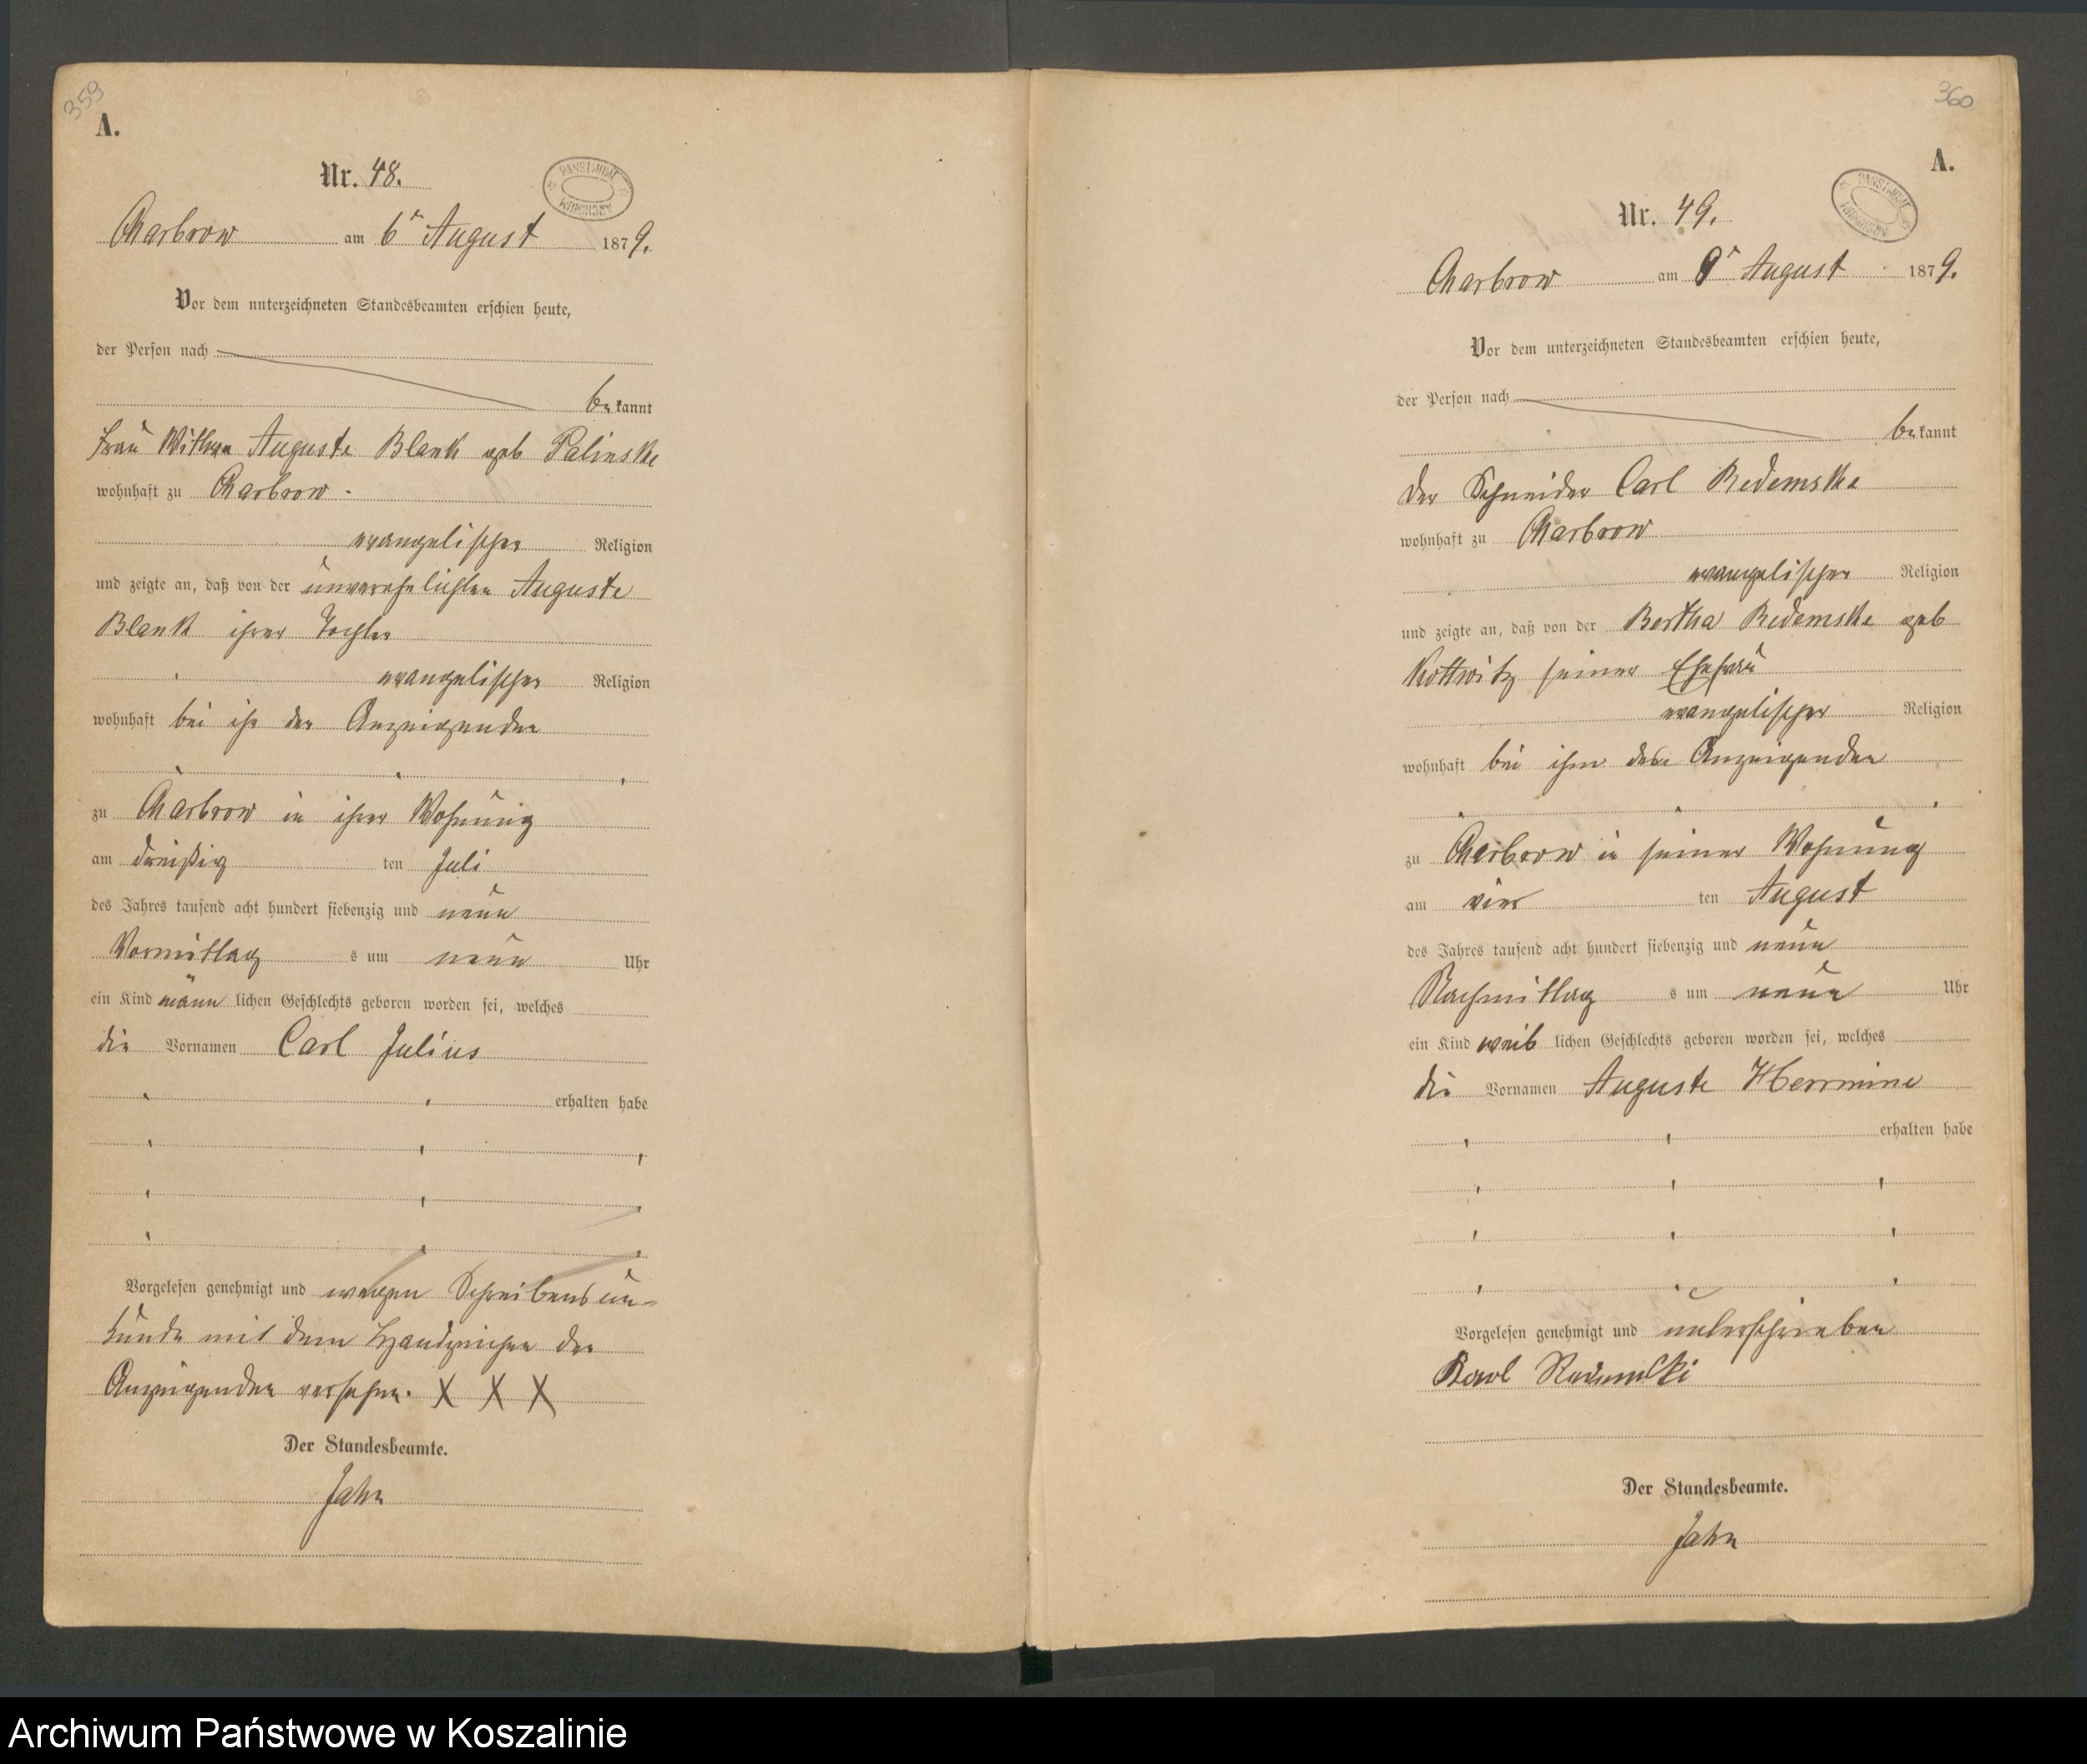 359
A.
Nr. 48.
Charbrow am 6ᵗ August 1879.
Vor dem unterzeichneten Standesbeamten erschien heute,
der Person nach
bekannt
Frau Wittwe Auguste Blank geb Palinske
wohnhaft zu Charbrow.
evangelischer Religion
und zeigte an, daß von der unverehelichten Auguste
Blank ihrer Tochter
evangelischer Religion
wohnhaft bei ihr der Anzeigenden
zu Charbrow in ihrer Wohnung
am dreißig ten Juli
des Jahres tausend acht hundert siebenzig und neun
Vormittag s um neun Uhr
ein Kind männ lichen Geschlechts geboren worden sei, welches
die Vornamen Carl Julius
erhalten habe
Vorgelesen genehmigt und wegen Schreibensun-
kunde mit dem Handzeichen der
Anzeigenden versehen. X X X
Der Standesbeamte.
Jahn
360
A.
Nr. 49.
Charbrow am August 1879.
Vor dem unterzeichneten Standesbeamten erschien heute,
der Person nach
bekannt
Der Schneider Carl Redemske
wohnhaft zu Charbrow
evangelischer Religion
und zeigte an, daß von der Bertha Redemske geb
Kottwitz seiner Ehefrau
evangelischer Religion
wohnhaft bei ihm dem Anzeigenden
zu Charbrow in seiner Wohnung
am vier ten August
des Jahres tausend acht hundert siebenzig und neun
Nachmittag s um neun Uhr
ein Kind weib lichen Geschlechts geboren worden sei, welches
die Vornamen Auguste Herrmine
erhalten habe
Vorgelesen genehmigt und unterschrieben
Karl
Der Standesbeamte.
Jahn
Archiwum Państwowe w Koszalinie